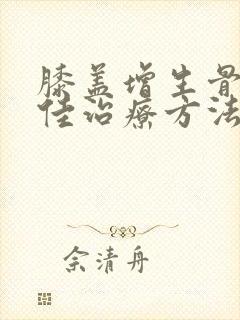 膝盖增生骨
佳治疗方法
佘清舟